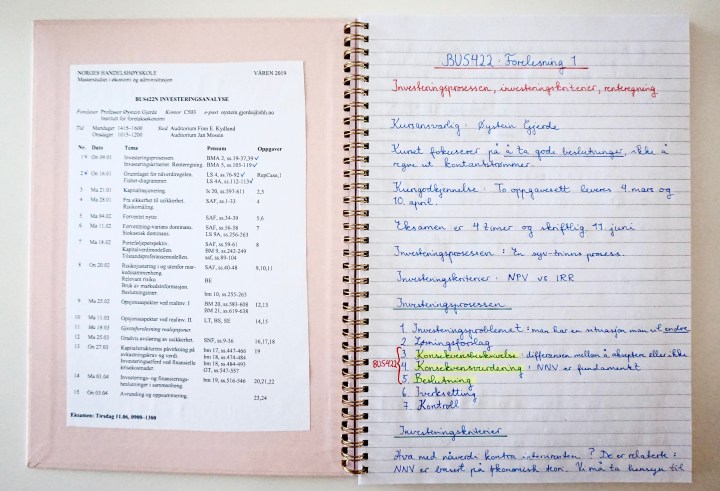 NORGES HANDELSHØYSKOLE VÅREN 2019
Masterstudiet i økonomi og administrasjon
BUS422N INVESTERINGSANALYSE
Foreleser Professor Øystein Gjerde Kontor C503 e-post oystein.gjerde@nhh.no
Institutt for foretaksøkonomi
Tid Mandager 1415–1600 Sted Auditorium Finn E. Kydland
Onsdager 1015–1200 Auditorium Jan Mossin
Nr. Dato Tema Pensum Oppgaver
1 On 09.01 Investeringsprosessen. BMA 2, ss.19-37,39
Investeringskriterier. Renteregning. BMA 5, ss.105-119
2 On 16.01 Grunnlaget for nåverdiregelen. LS 4, ss.76-92 RepCase,1
Fisher-diagrammet. LS 4A, ss.112-113
3 Ma 21.01 Kapitalrasjonering. ls 20, ss.593-611 2,3
4 Ma 28.01 Fra sikkerhet til usikkerhet. SAF, ss.1-33 4
Risikomåling.
5 Ma 04.02 Forventet nytte. SAF, ss.34-38 5,6
6 Ma 11.02 Forventning-varians dominans. SAF, ss.36-38 7
Stokastisk dominans. LS 9A, ss.256-263
7 Ma 18.02 Porteføljeperspektiv. SAF, ss.39-61 8
Kapitalverdimodellen. BM 9, ss.243-249
Tilstandsprefereansemodellen. saf, ss.89-104
8 On 20.02 Risikojustering i og utenfor mar- SAF, ss.40-48 9,10,11
kedssammenheng.
Relevant risiko. BE
Bruk av markedsinformasjon.
Beslutningstrær. bm 10, ss.255-263
9 Ma 25.02 Opsjonsaspekter ved realinv. I BM 20, ss.583-608 12,13
BM 21, ss.619-638
10 Ma 11.03 Opsjonsaspekter ved realinv. II LT, BS, SE 14,15
11 Ma 18.03 Gjesteforelesning realopsjoner.
12 Ma 25.03 Gradvis avsløring av usikkerhet. SNF, ss.9-36 16,17,18
13 On 27.03 Kapitalstrukturens påvirkning på bm 17, ss.447-466 19
avkastningskrav og verdi. bm 18, ss.474-484
Investeringsatferd ved finansielle bm 19, ss.493-507
krisekostnader. GT, ss.547-557
14 Ma 01.04 Investerings- og finansierings- bm 19, ss.516-546 20,21,22
beslutninger i sammenheng.
15 On 03.04 Avrunding og oppsummering. 23,24
Eksamen: Tirsdag 11.06, 0900–1300
BUS422 · Forelesning 1
Investeringsprosessen, investeringskriterier, renteregning
Kursansvarlig: Øystein Gjerde
Kurset fokuserer på å ta gode beslutninger, ikke å
regne ut kontantstrømmer.
Kursgodkjennelse: To oppgavesett leveres 4. mars og
10. april.
Eksamen er 4 timer og skriftlig 11. juni
Investeringsprosessen: En syv-trinns prosess.
Investeringskriterier: NPV vs IRR
Investeringsprosessen
1. Investeringsproblemet: man har en situasjon man vil endre
2. Løsningsforslag
3. Konsekvensbeskrivelse: differansen mellom å akseptere eller ikke
BUS422 4. Konsekvensvurdering: NNV er fundamentet
5. Beslutning
6. Iverksetting
7. Kontroll
Investeringskriterier
Hva med nåverdi kontra internrenten? De er relaterte:
NNV er basert på økonomisk teori. Vi må ta hensyn til